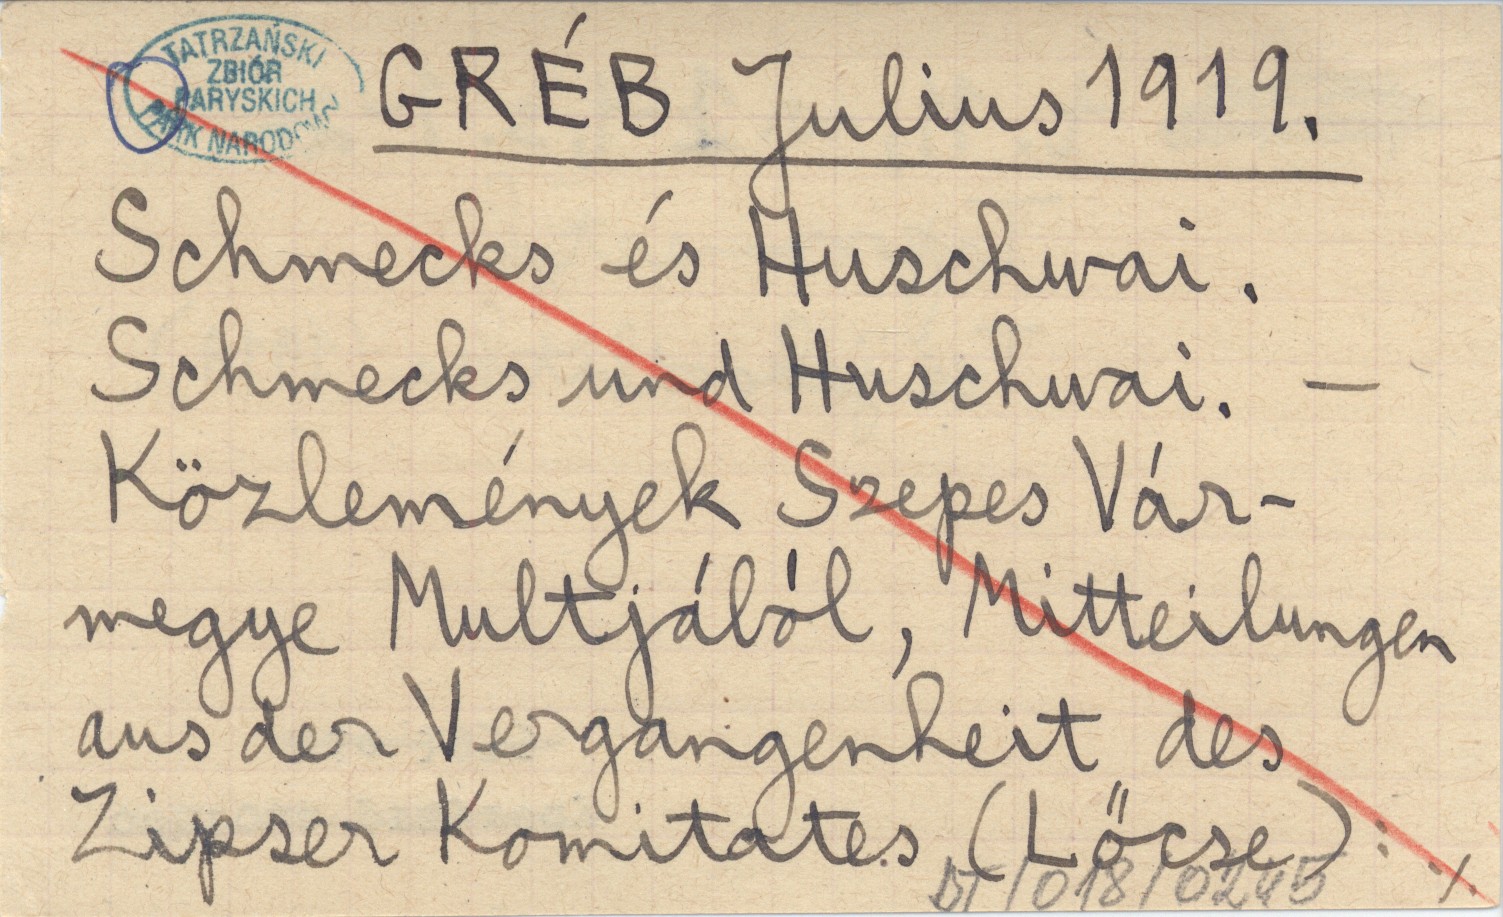 TATRZAŃSKI
ZBIÓR
PARYSKICH
PARK NARODOWY
GRÉB Julius 1919.
Schmecks és Huschwai.
Schmecks und Huschwai. —
Közlemények Szepes Vár-
megye Multjából, Mitteilungen
aus der Vergangenheit des
Zipser Komitates (Lőcse):
DT/018/0245 ./.